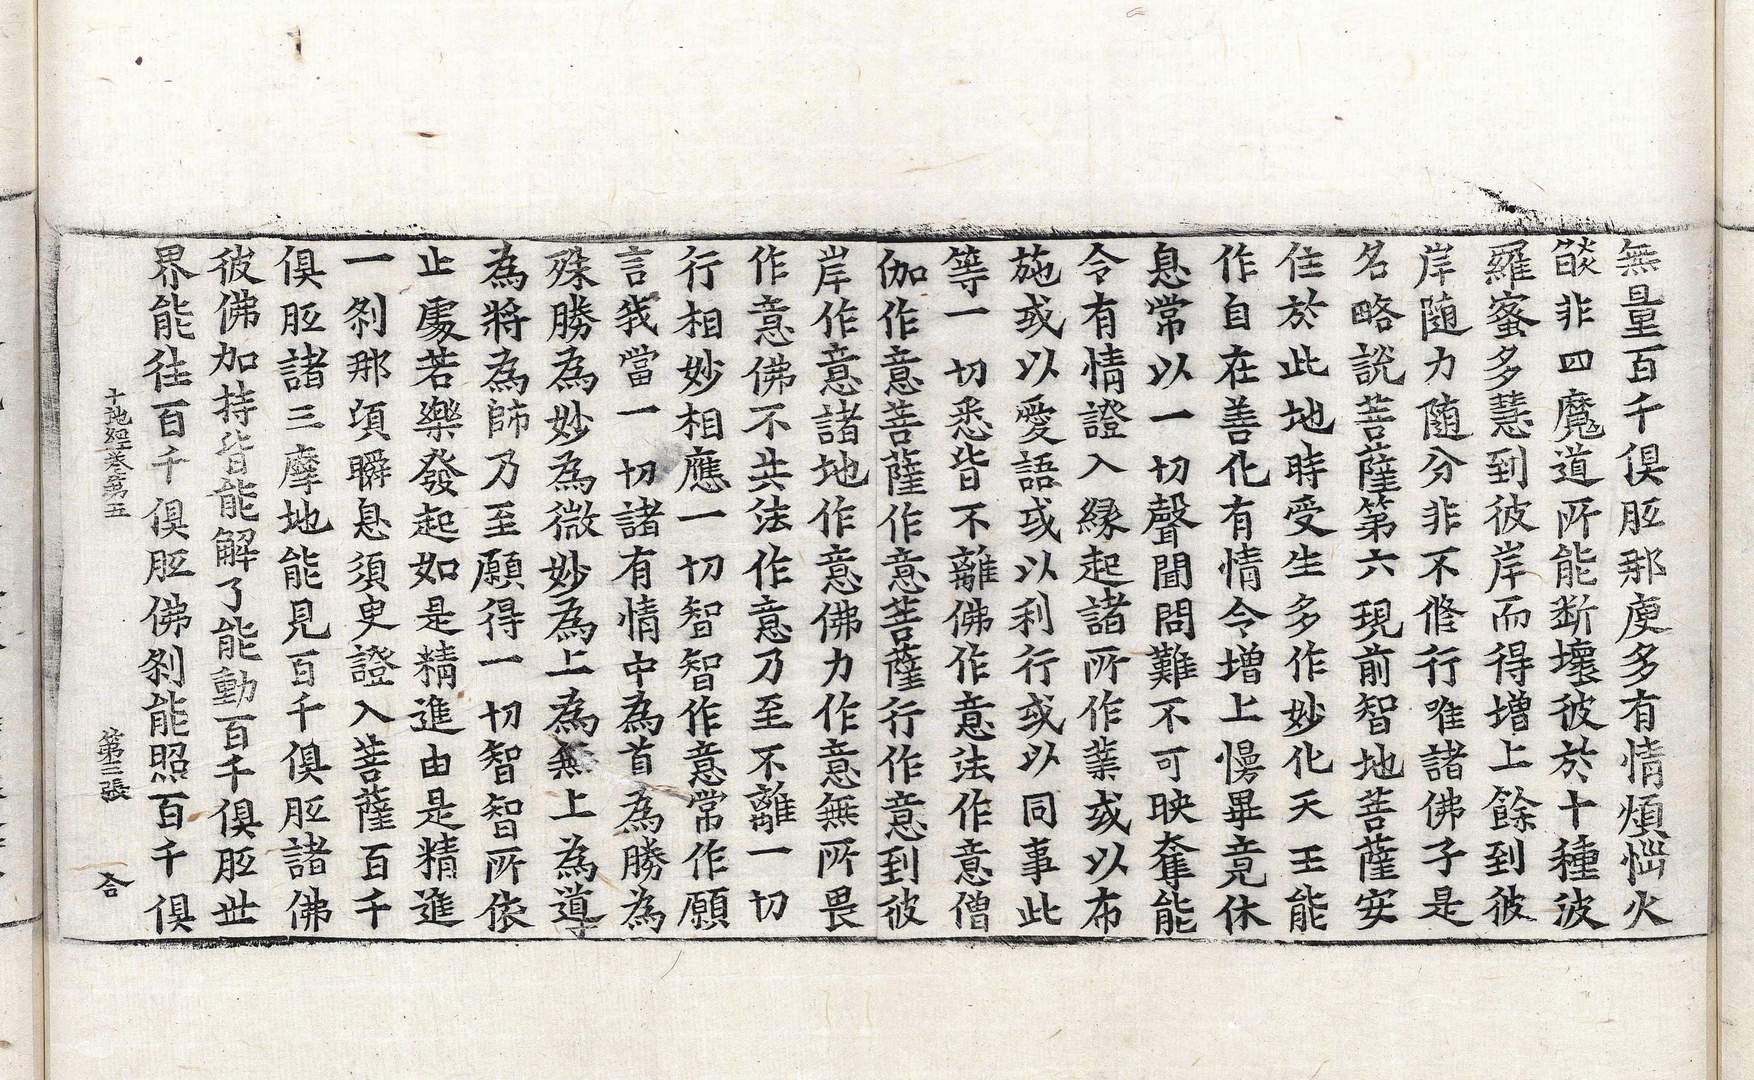 無量百千俱胝那庾多有情煩惱火
𦦨非四魔道所能断壞彼於十種波
羅蜜多慧到彼岸而得增上餘到彼
岸随力随分非不修行唯諸佛子是
名略說菩薩第六現前智地菩薩安
住於此地時受生多作妙化天王能
作自在善化有情令增上慢畢竟休
息常以一切聲聞問難不可映奪能
令有情證入緣起諸所作業或以布
施或以愛語或以利行或以同事此
等一切悉皆不離佛作意法作意僧
伽作意菩薩作意菩薩行作意到彼
岸作意諸地作意佛力作意無所畏
作意佛不共法作意乃至不離一切
行相妙相應一切智智作意常作願
言我當一切諸有情中為首為勝為
殊勝為妙為微妙為上為無上為導
為將為帥乃至願得一切智智所依
止處若樂發起如是精進由是精進
一刹那頃瞬息須臾證入菩薩百千
俱胝諸三摩地能見百千俱胝諸佛
彼佛加持皆能解了能動百千俱胝世
界能往百千俱胝佛刹能照百千俱
十地經卷第五 第三張 合